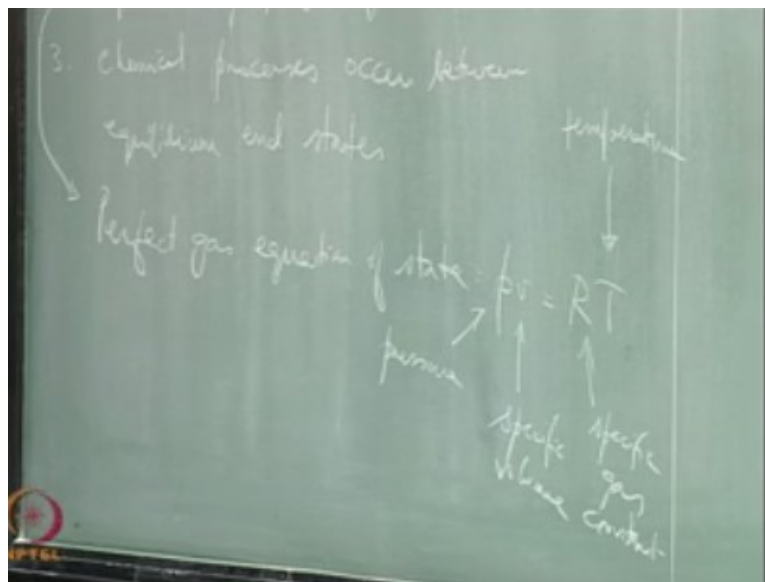 3. chemical processes occur between
equilibrium end states
temperature
Perfect gas equation of state = pv = RT
pressure
specific volume
specific gas constant
NPTEL